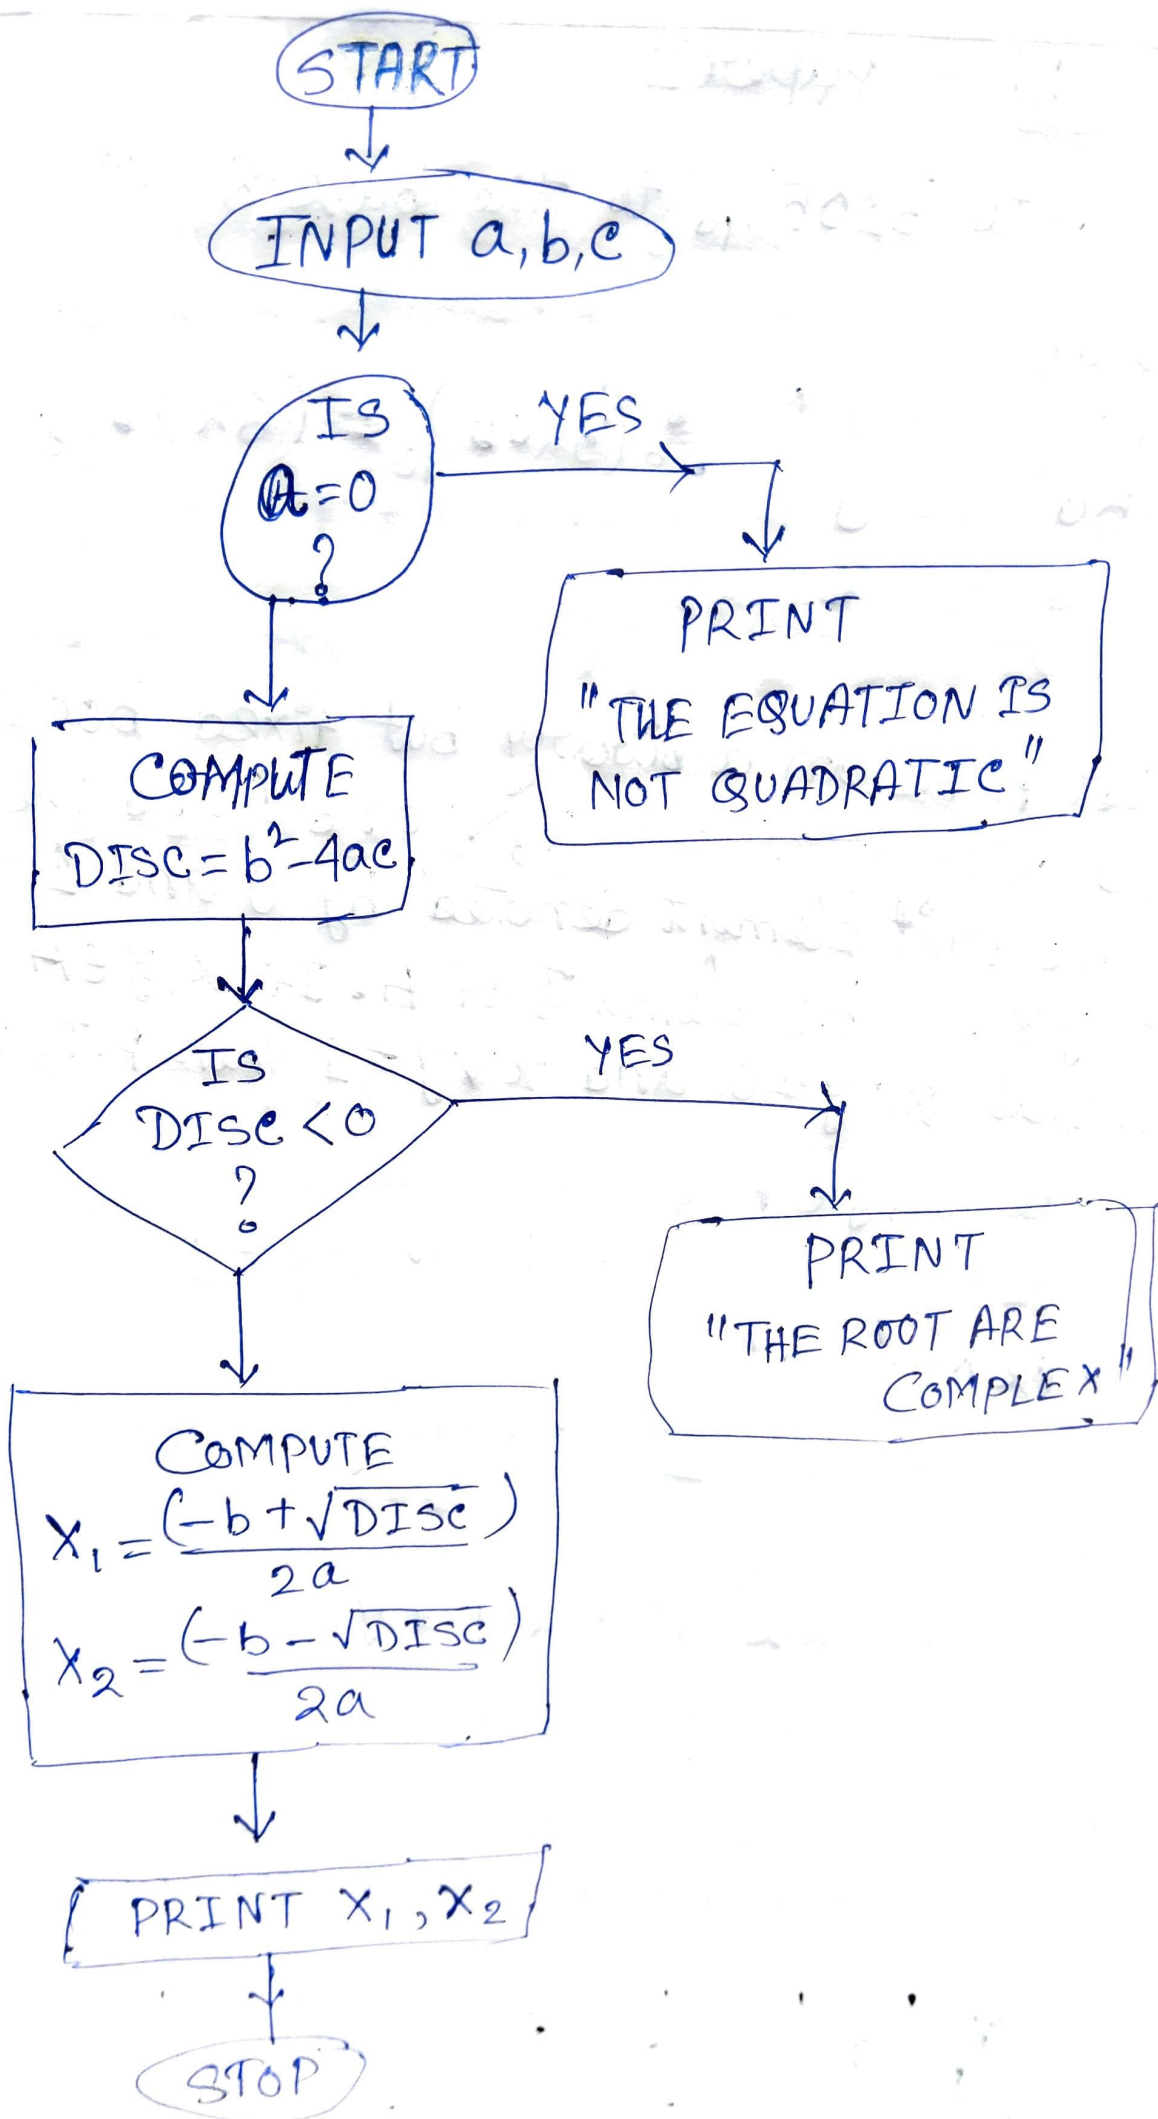 START
INPUT a,b,c
IS
a=0
?
YES
PRINT
"THE EQUATION IS
NOT QUADRATIC"
COMPUTE
DISC = b²-4ac
IS
DISC <0
?
YES
PRINT
"THE ROOT ARE
COMPLEX"
COMPUTE
X₁ = (-b+√DISC)
2a
X₂ = (-b-√DISC)
2a
PRINT X₁, X₂
STOP